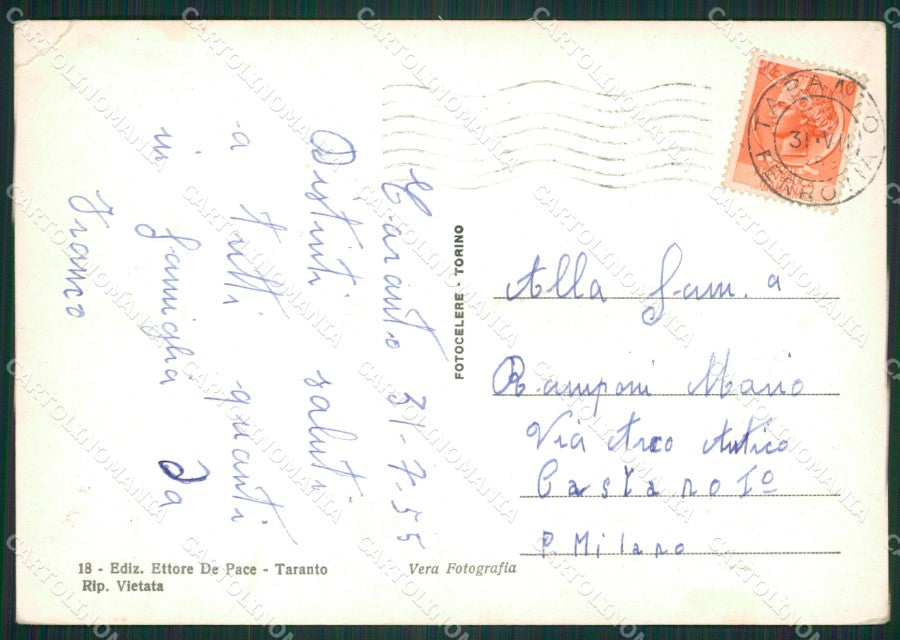 Taranto 31-7-55
Distinti saluti
a tutti quanti
in famiglia da
Franco
FOTOCELERE - TORINO
TARANTO
FERROVIA
Alla Fam.a
Ramponi Mario
Via Arco Antico
Castano Iº
P. Milano
18 - Ediz. Ettore De Pace - Taranto
Rip. Vietata
Vera Fotografia
CARTOLINOMANIA